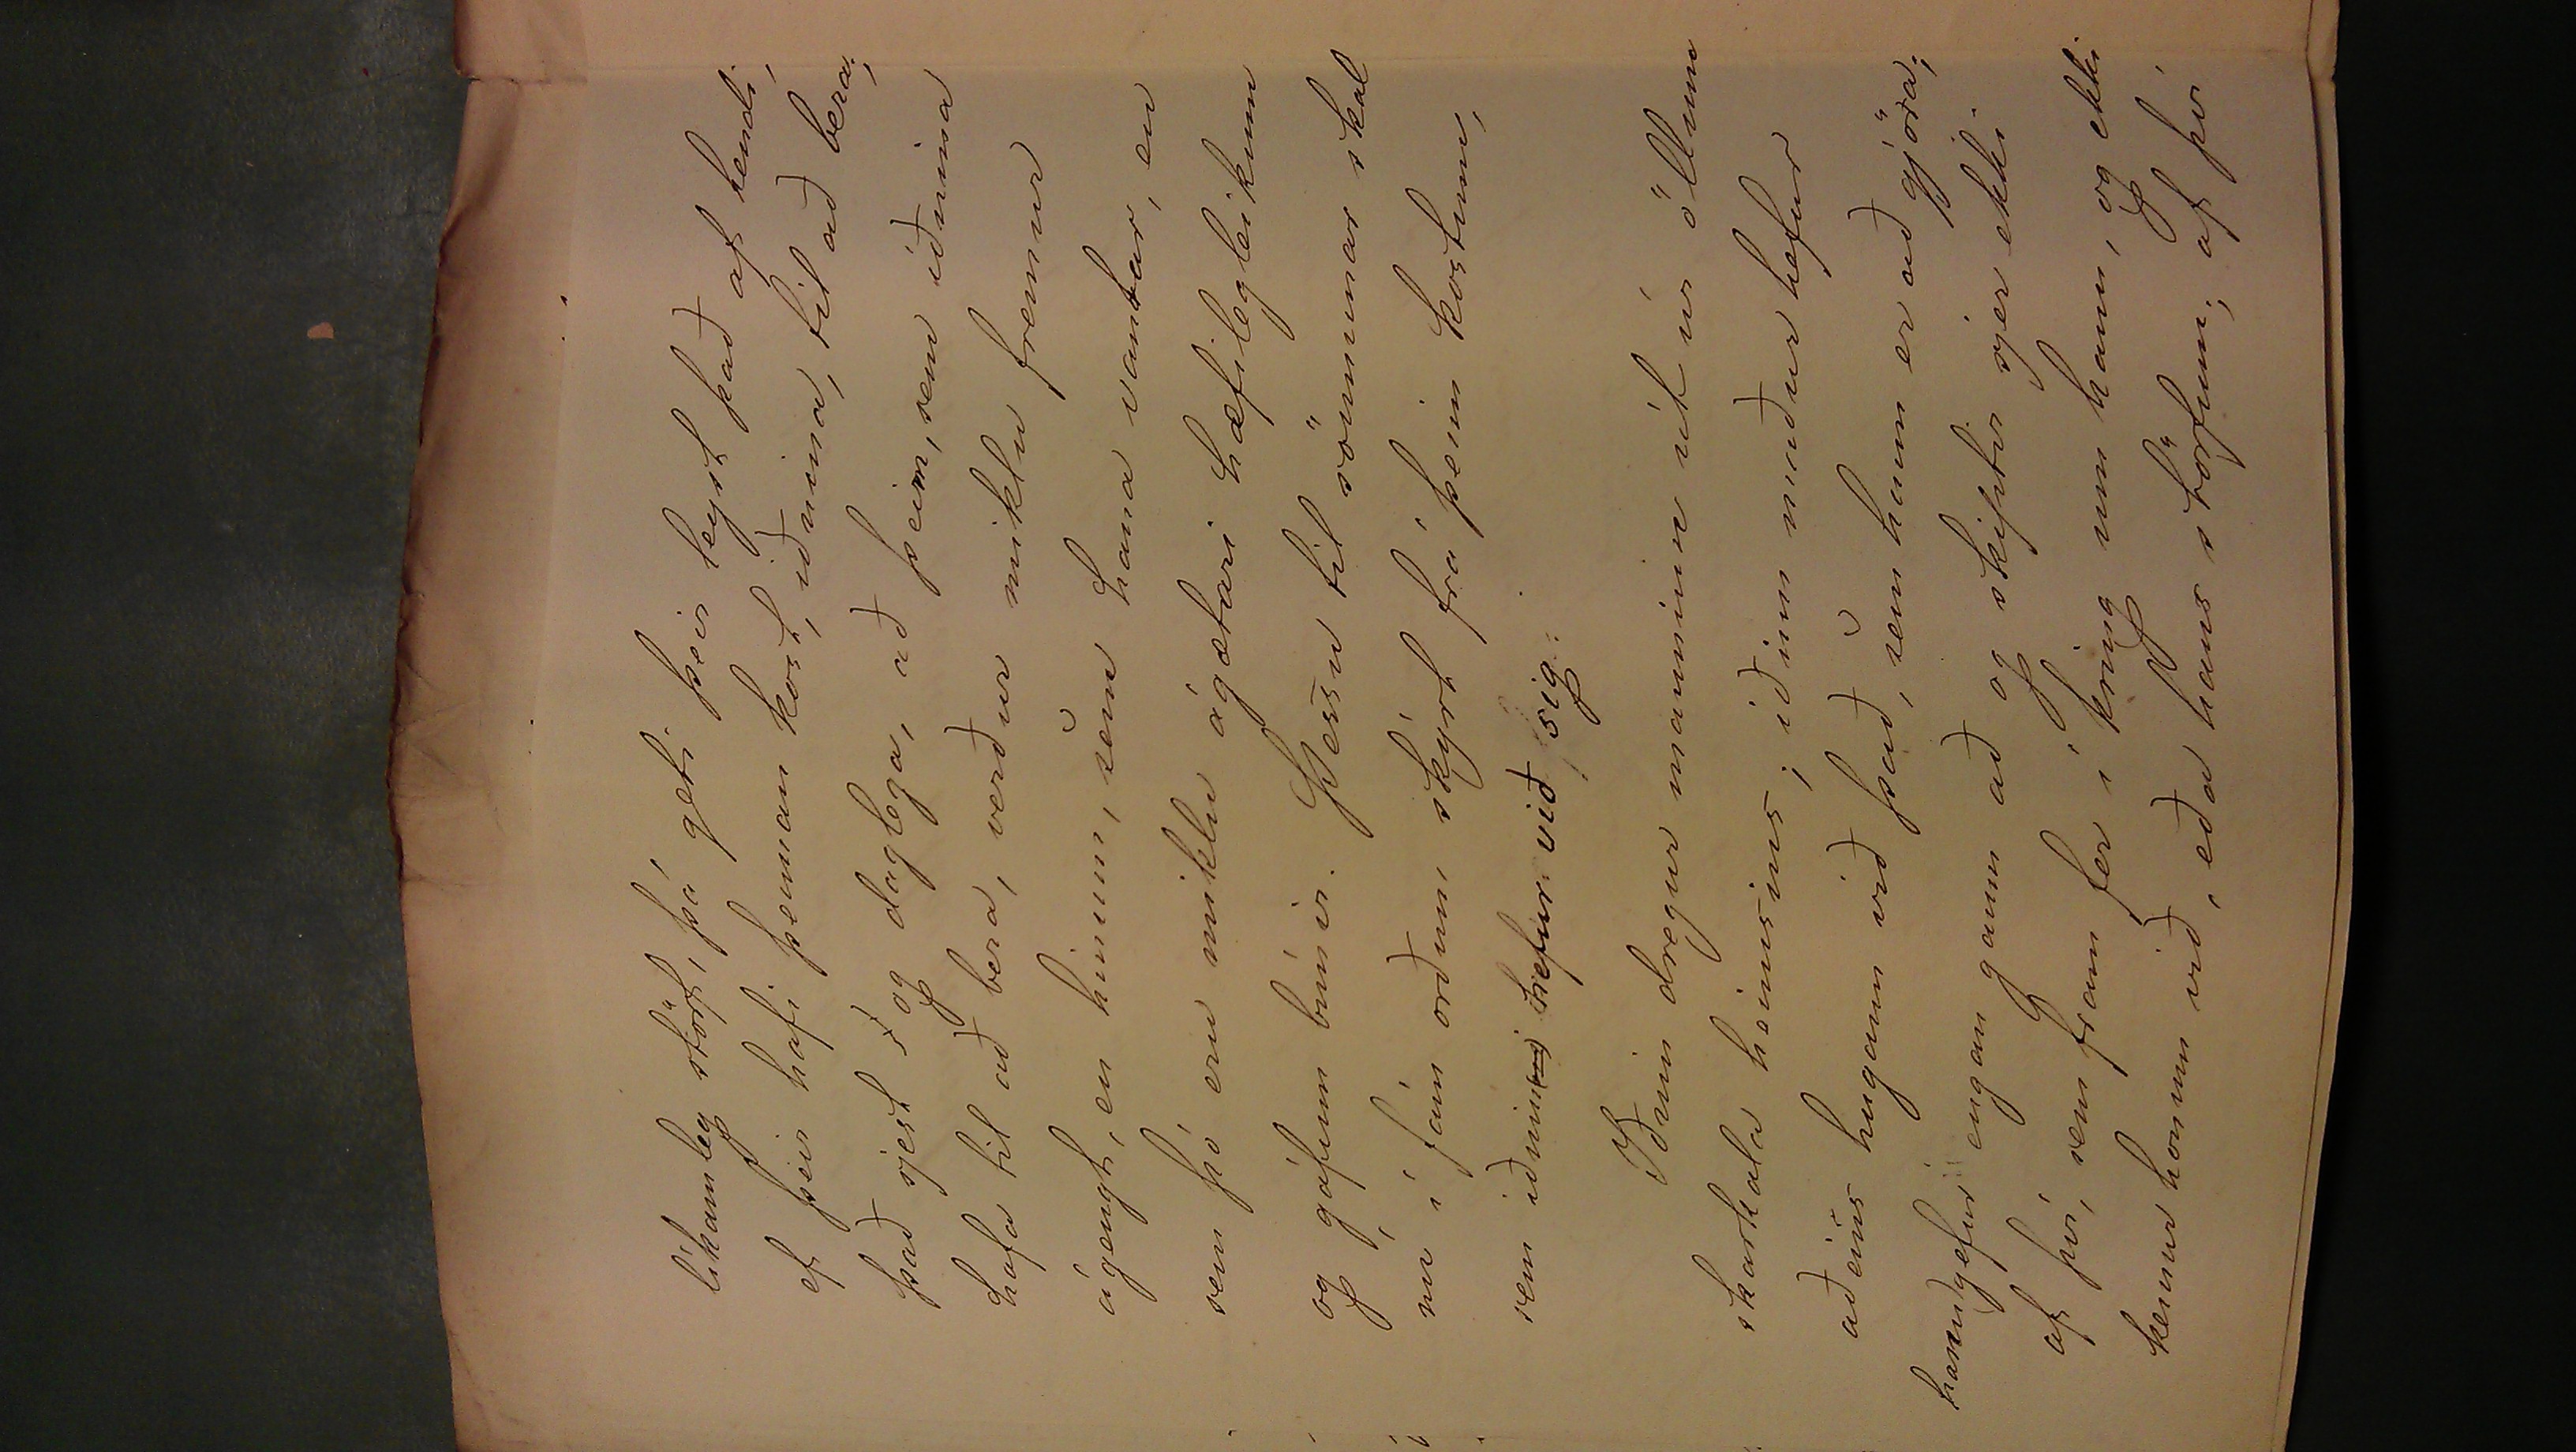 líkamleg störf, þá geti þeir leyst það af hendi,
ef þeir hafi þennan kost, iðnina, til að bera;
það sjest og daglega, að þeim, sem iðnina
hafa til að bera, verður miklu fremur
ágengt, en hinum, sem hana vantar, en
sem þó eru miklu ágætari hæfileglikum
og gáfum búnir. Þessu til sönnunar skal
nú í fám orðum skýrt frá þeim kostum,
sem iðnin hefur við sig.
Iðnin dregur manninn út úr öllum
skarkala heimsins; iðinn maður hefur
aðeins hugann við það, sem hann er að gjöra;
hann gefur engan gaum að og skiptir sjer ekki
af því, sem fram fer í kring um hann, og ekki
kemur honum við, eða hans störfum; af því